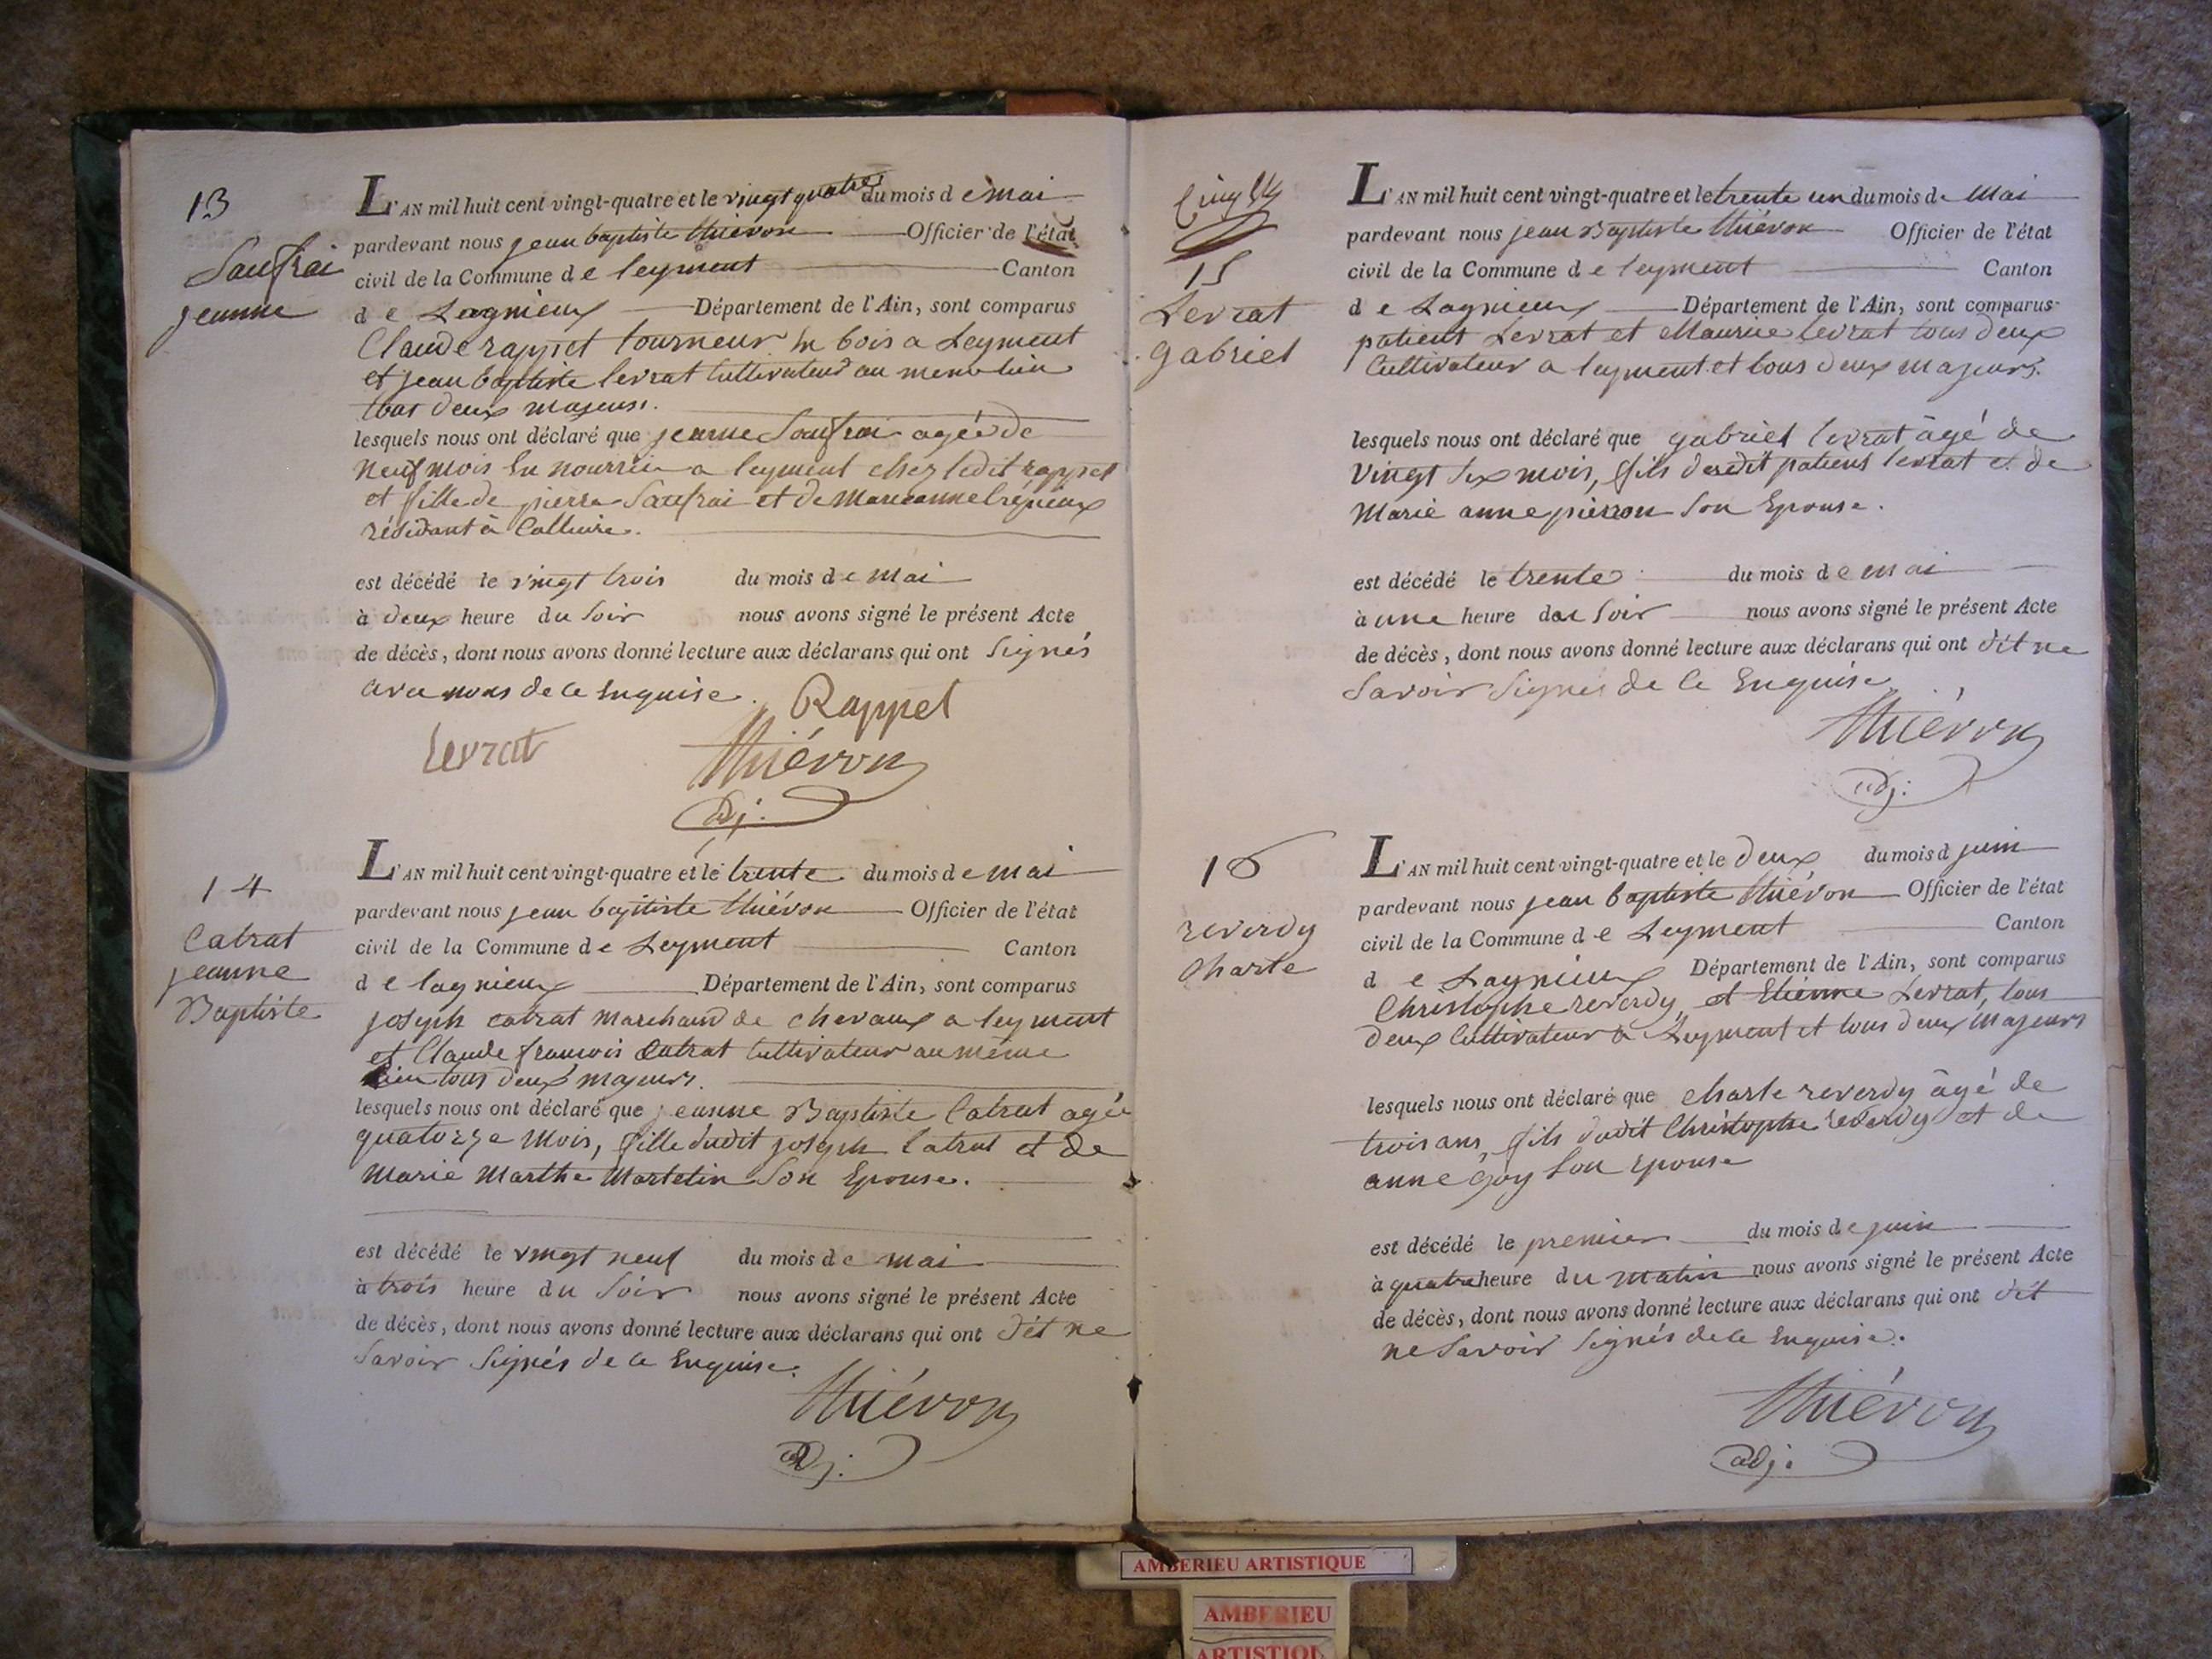 13
Saufrai
jeanne
L'AN mil huit cent vingt-quatre et le vingt quatre du mois de mai
pardevant nous jean baptiste thiévon Officier de l'état
civil de la Commune de leyment Canton
de Lagnieux Département de l'Ain, sont comparus
Claude rappet tourneur en bois a Leyment
et jean baptiste levrat Cultivateur au meme lieu
tous deux majeurs.
lesquels nous ont déclaré que jeanne Saufrai agée de
neuf mois en nourrice a leyment chez ledit rappet
et fille de pierre Saufrai et de Marieanne
résidant à Calluire.
est décédé le vingt trois du mois de mai
à deux heure du Soir nous avons signé le présent Acte
de décès, dont nous avons donné lecture aux déclarans qui ont Signés
avec nous de ce Enquise. Rappet
Levrat thiévon
adj.
14
Catrat
jeanne
Baptiste
L'AN mil huit cent vingt-quatre et le trente du mois de mai
pardevant nous jean baptiste thiévon Officier de l'état
civil de la Commune de Leyment Canton
de lagnieux Département de l'Ain, sont comparus
joseph catrat marchand de chevaux a leyment
et Claude francois Catrat Cultivateur au même
lieu tous deux majeurs.
lesquels nous ont déclaré que jeanne Baptiste Catrat agée
quatorze mois, fille dudit joseph Catrat et de
Marie Marthe Martelin Son Epouse.
est décédé le vingt neuf du mois de mai
à trois heure du Soir nous avons signé le présent Acte
de décès, dont nous avons donné lecture aux déclarans qui ont dit ne
Savoir Signés de ce Enquise.
thiévon
adj.
15
Levrat
gabriel
L'AN mil huit cent vingt-quatre et le trente un du mois de Mai
pardevant nous jean Baptiste thiévon Officier de l'état
civil de la Commune de leyment Canton
de Lagnieux Département de l'Ain, sont comparus
patient Levrat et Maurice levrat tous deux
Cultivateur a leyment et tous deux majeurs.
lesquels nous ont déclaré que gabriel levrat âgé de
Vingt Six mois, fils dudit patient levrat et de
Marie anne pierron Son Epouse.
est décédé le trente du mois de mai
à une heure du Soir nous avons signé le présent Acte
de décès, dont nous avons donné lecture aux déclarans qui ont dit ne
Savoir Signés de ce Enquise
thiévon
adj.
16
reverdy
Charle
L'AN mil huit cent vingt-quatre et le deux du mois d juin
pardevant nous jean baptiste thiévon Officier de l'état
civil de la Commune de Leyment Canton
de Lagnieux Département de l'Ain, sont comparus
Christophe reverdy et Etienne Levrat, tous
deux Cultivateur à Leyment et tous deux majeurs
lesquels nous ont déclaré que charle reverdy âgé de
trois ans, fils dudit Christophe reverdy et de
anne goy Son Epouse
est décédé le premier du mois de juin
à quatre heure du matin nous avons signé le présent Acte
de décès, dont nous avons donné lecture aux déclarans qui ont dit
ne Savoir Signés de ce Enquise.
thiévon
adj.
AMBERIEU ARTISTIQUE
AMBERIEU